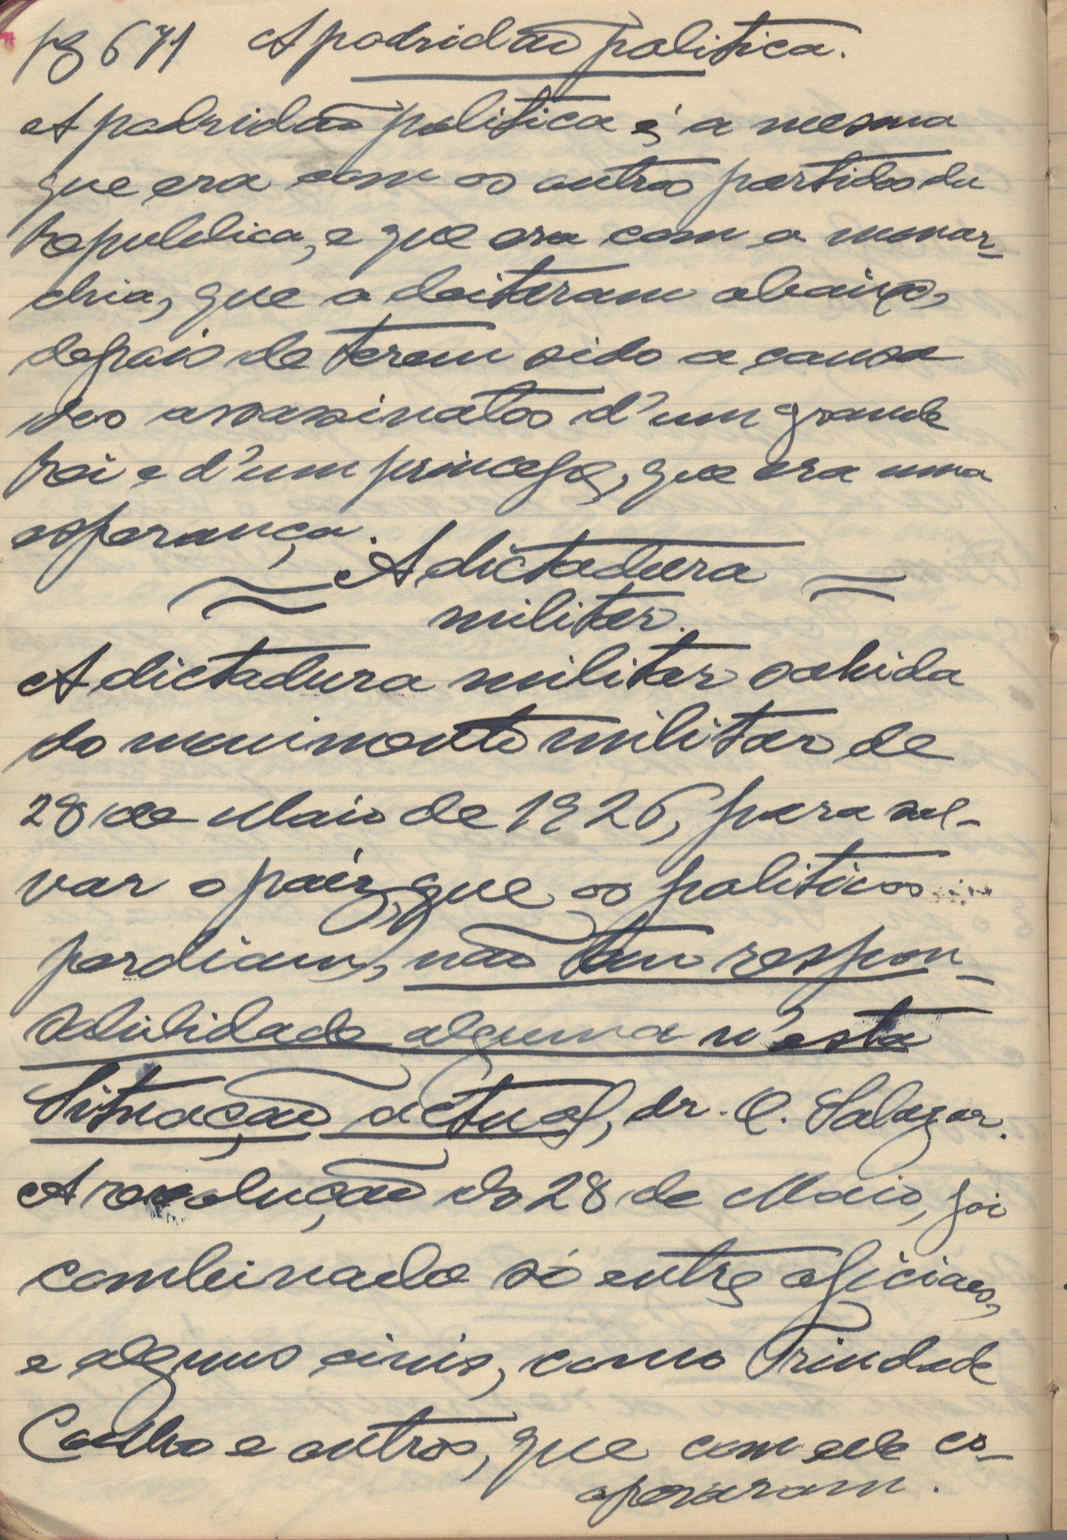 pg 671 A podridão politica.
A podridão politica é a mesma
que era com os outros partidos da
Republica, e que era com a monar-
chia, que a deitaram abaixo,
depois de terem sido a causa
dos assassinatos d'um grande
Rei e d'um principe, que era uma
esperança.
A dictadura
militar.
A dictadura militar sahida
do movimento militar de
28 de Maio de 1926, para sal-
var o paiz, que os politicos
perdiam, não tem respon-
sabilidade alguma n'esta
Situação actual, dr. O. Salazar.
A revolução do 28 de Maio, foi
combinada só entre oficiaes,
e alguns civis, como Trindade
Coelho e outros, que com ele co-
operaram.